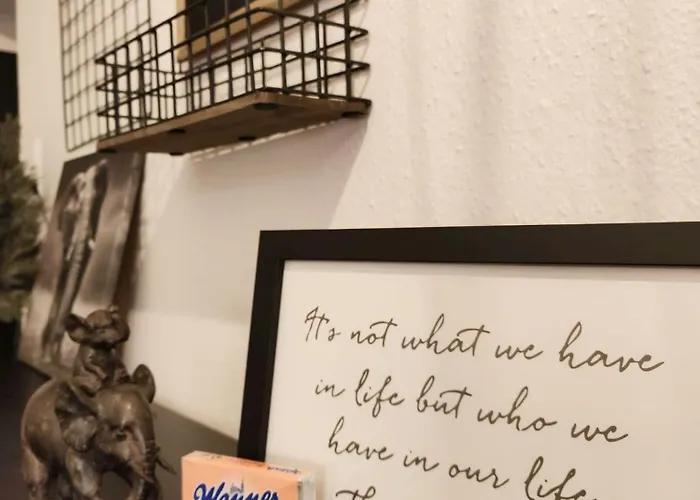 It's not what we have
in life but who we
have in our life
Manner